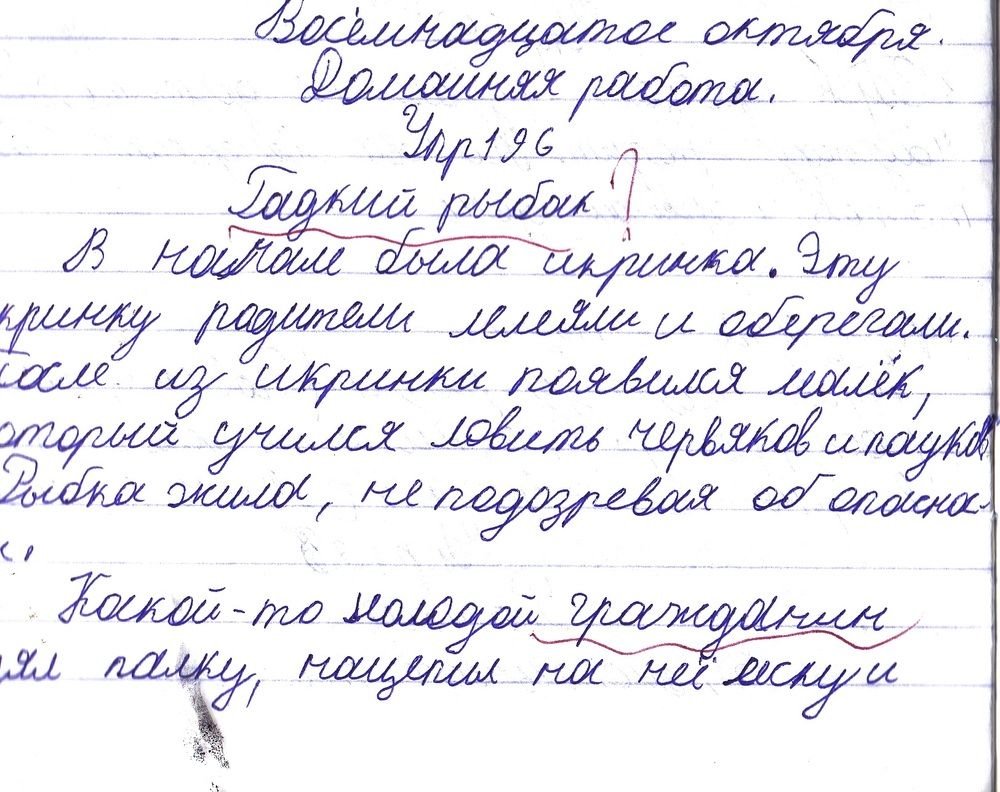 Восемнадцатое октября.
Домашняя работа.
Упр196
Гадкий рыбак ?
В начале была икринка. Эту
кринку родители лелеяли и оберегали.
После из икринки появился малёк,
оторый учился ловить червяков и пауков
Рыбка жила, не подозревая об опасно-
Какой-то молодой гражданин
ял палку, нацепил на неё леску и